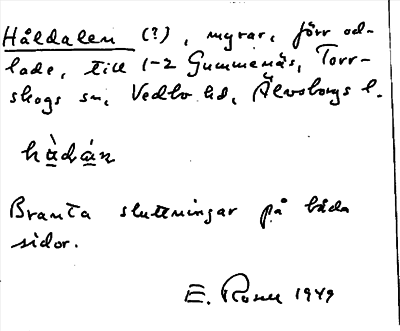 Håldalen (?), myrar, förr od-
lade, till 1-2 Gummenäs, Torr-
skogs sn, Vedbo hd, Älvsborgs l.
hàdán
Branta sluttningar på båda
sidor.
E. Rosen 1949